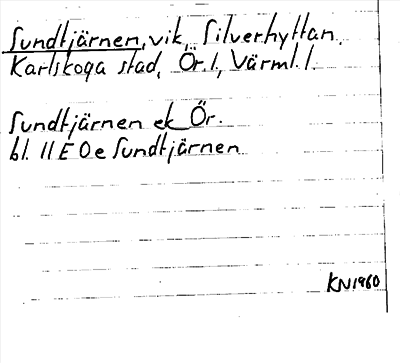 Sundtjärnen, vik, Silverhyttan.
Karlskoga stad, Ör. l., Värml. l.
Sundtjärnen ek Ör.
bl. 11 E 0 e Sundtjärnen
KN 1960